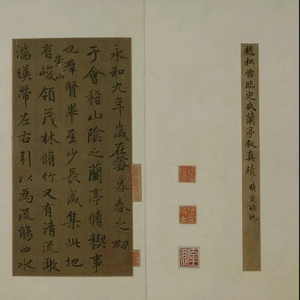 趙松雪臨定武蘭亭叙真蹟
永和九年歲在癸丑暮春之初
于會稽山陰之蘭亭脩稧事
也羣賢畢至少長咸集此地
崇山
有峻領茂林脩竹又有清流激
湍暎帶左右引以為流觴曲水